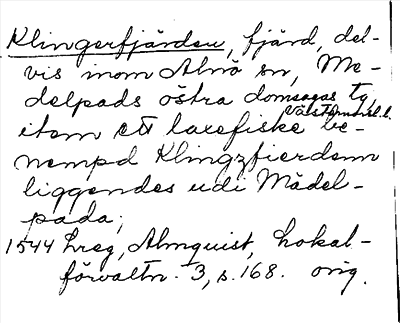 Klingerfjärden, fjärd, del-
vis inom Alnö sn, Me-
delpads östra domsagas tg,
Västernorrl. l.
item ett laxefiske be-
nempd Klingzfierdenn
liggendes udi Mädel-
pada;
1544 hreg, Almquist, Lokal-
förvaltn. 3, s. 168. orig.